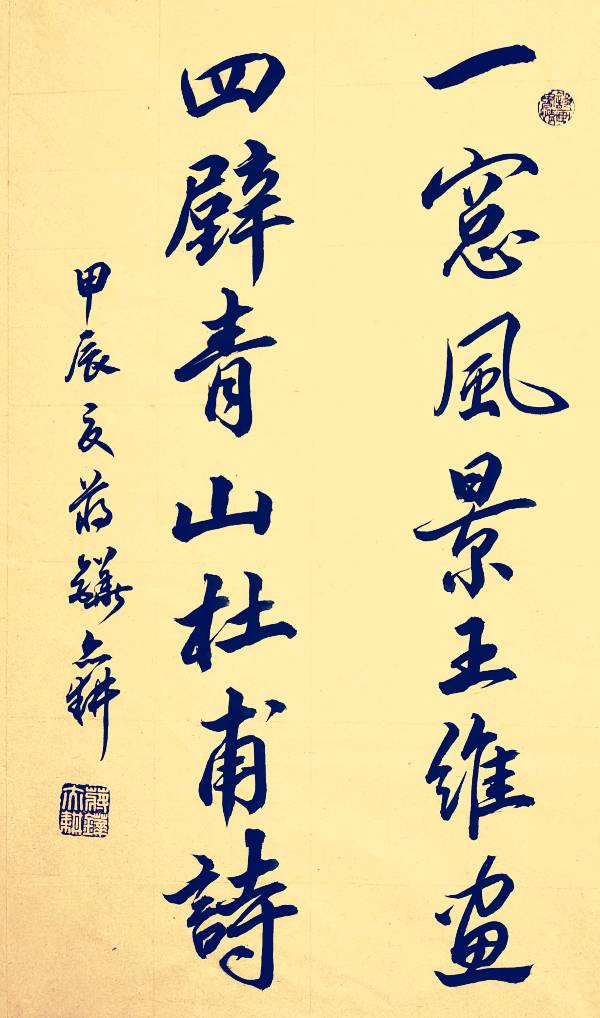 一窓風景王維畫
四壁青山杜甫詩
甲辰夏蔣鏵